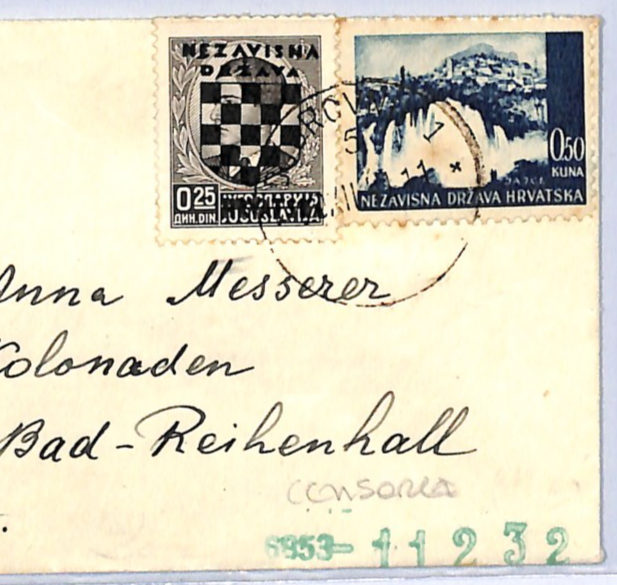 NEZAVISNA
DRŽAVA
0.25
ДИН. DIN.
ЈУГОСЛАВИЈА
JUGOSLAVIJA
0.50
KUNA
JAJCE
NEZAVISNA DRŽAVA HRVATSKA
5
11
Anna Messerer
Kolonaden
Bad-Reihenhall
censored
6953-11232